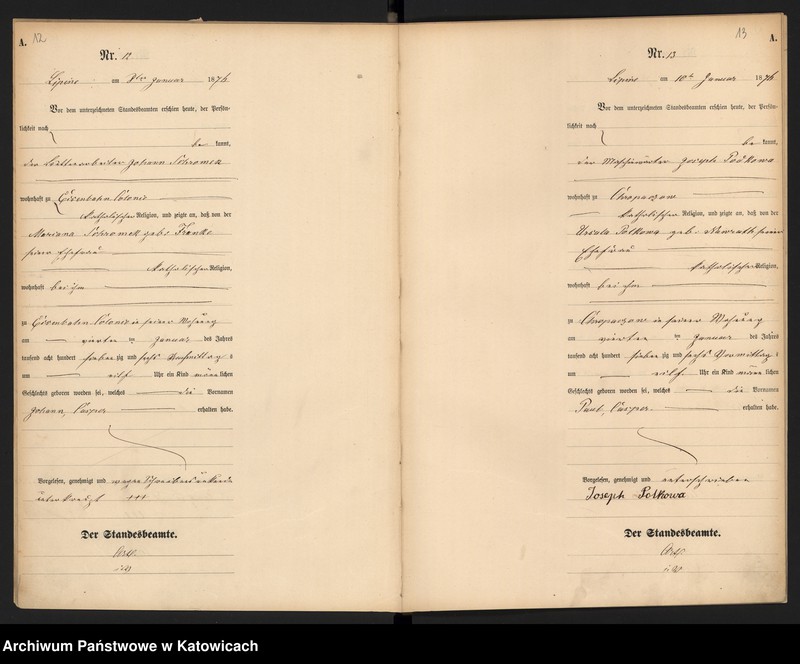 A. 12
Nr. 12
Lipine am ten Januar 1876
Vor dem unterzeichneten Standesbeamten erschien heute, der Persön-
lichkeit nach
be kannt,
der Johann Schromek
wohnhaft zu Eisenbahn Colonie
katholischer Religion, und zeigte an, daß von der
Mariana Schromek geb. Franke
seiner Ehefrau
katholischer Religion,
wohnhaft bei ihm
zu Eisenbahn Colonie in seiner Wohnung
am vierten ten Januar des Jahres
tausend acht hundert sieben zig und sechs Nachmittag s
um Uhr ein Kind männ lichen
Geschlechts geboren worden sei, welches die Vornamen
Johann, Casper erhalten habe.
Vorgelesen, genehmigt und wegen
unterkreuzt +++
Der Standesbeamte.
i. V.
13 A.
Nr. 13
Lipine am 10ten Januar 1876
Vor dem unterzeichneten Standesbeamten erschien heute, der Persön-
lichkeit nach
be kannt,
der Joseph Polkowa
wohnhaft zu Chropaczow
katholischer Religion, und zeigte an, daß von der
Ursula Polkowa geb. Nawrath seiner
Ehefrau
katholischer Religion,
wohnhaft bei ihm
zu Chropaczow in seiner Wohnung
am vierten ten Januar des Jahres
tausend acht hundert sieben zig und sechs Vormittag s
um Uhr ein Kind männ lichen
Geschlechts geboren worden sei, welches die Vornamen
Paul, Casper erhalten habe.
Vorgelesen, genehmigt und unterschrieben
Joseph Polkowa
Der Standesbeamte.
i. V.
Archiwum Państwowe w Katowicach